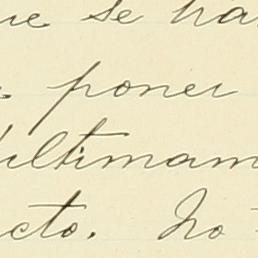 ue se ha
poner
Ultimam
cto. No